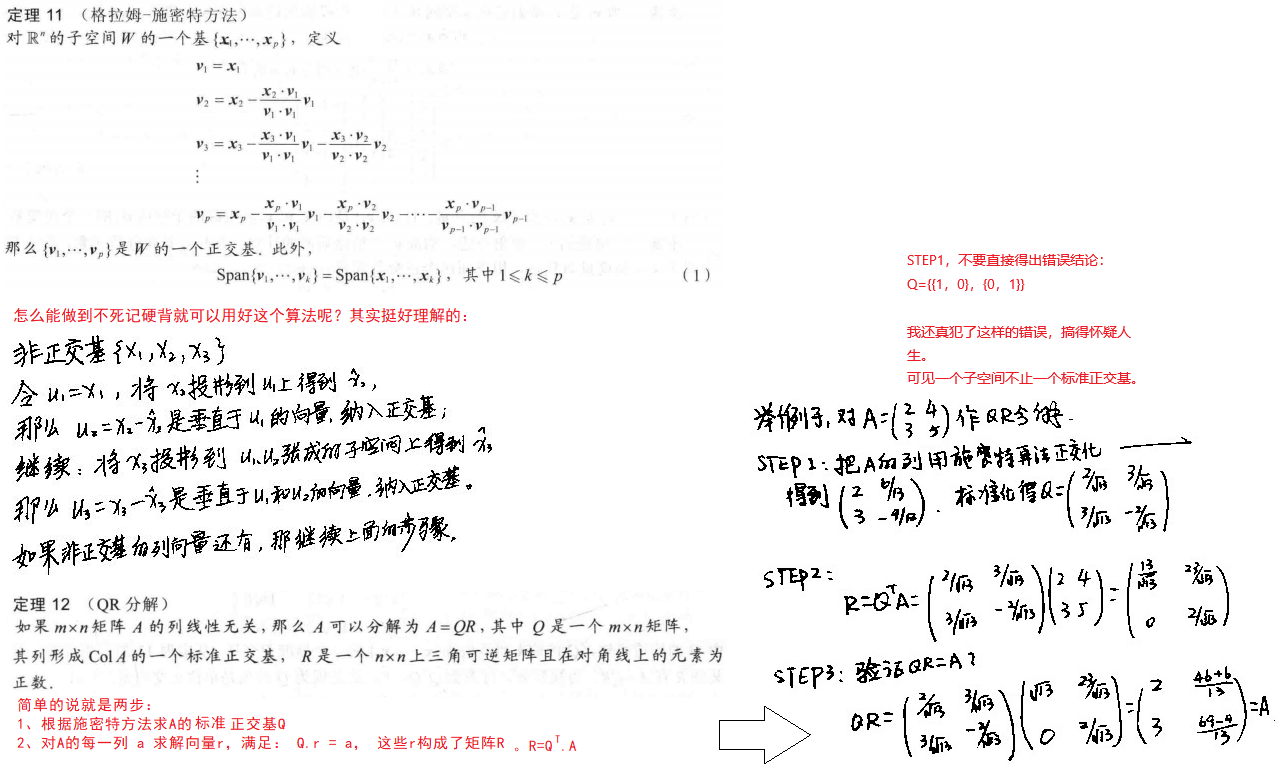 定理 11 （格拉姆-施密特方法）
对 ℝⁿ 的子空间 W 的一个基 {x₁,⋯,xₚ}，定义
v₁ = x₁
v₂ = x₂ − (x₂·v₁)/(v₁·v₁) v₁
v₃ = x₃ − (x₃·v₁)/(v₁·v₁) v₁ − (x₃·v₂)/(v₂·v₂) v₂
⋮
vₚ = xₚ − (xₚ·v₁)/(v₁·v₁) v₁ (xₚ·v₂)/(v₂·v₂) v₂ − ⋯ − (xₚ·vₚ₋₁)/(vₚ₋₁·vₚ₋₁) vₚ₋₁
那么 {v₁,⋯,vₚ} 是 W 的一个正交基. 此外,
Span{v₁,⋯,vₖ} = Span{x₁,⋯,xₖ}，其中 1≤k≤p （1）
怎么能做到不死记硬背就可以用好这个算法呢？其实挺好理解的：
非正交基{x₁,x₂,x₃}
令 u₁=x₁，将 x₂投影到 u₁上得到 x̂₂，
那么 u₂=x₂-x̂₂是垂直于u₁的向量,纳入正交基；
继续：将x₃投影到 u₁、u₂张成的子空间上得到 x̂₃
那么 u₃=x₃-x̂₃是垂直于u₁和u₂的向量,纳入正交基。
如果非正交基的列向量还有,那继续上面的步骤。
定理 12 （QR 分解）
如果 m×n 矩阵 A 的列线性无关, 那么 A 可以分解为 A=QR, 其中 Q 是一个 m×n 矩阵,
其列形成 Col A 的一个标准正交基， R 是一个 n×n 上三角可逆矩阵且在对角线上的元素为
正数.
简单的说就是两步：
1、根据施密特方法求A的标准正交基Q
2、对A的每一列 a 求解向量r，满足： Q.r = a， 这些r构成了矩阵R 。R=Qᵀ.A
STEP1，不要直接得出错误结论：
Q={{1，0}，{0，1}}
我还真犯了这样的错误，搞得怀疑人
生。
可见一个子空间不止一个标准正交基。
举例子,对A=(2 4; 3 5)作QR分解.
STEP1：把A的列用施密特算法正交化
得到(2 6/13; 3 -4/13). 标准化得Q=(2/√13 3/√13; 3/√13 -2/√13)
STEP2：
R=QᵀA=(2/√13 3/√13; 3/√13 -2/√13)(2 4; 3 5)=(13/√13 23/√13; 0 2/√13)
STEP3：验证QR=A？
QR=(2/√13 3/√13; 3/√13 -2/√13)(√13 23/√13; 0 2/√13)=(2 (46+6)/13; 3 (69-4)/13)=A.